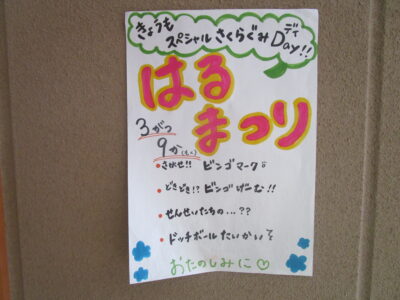 きょうも
スペシャルさくらぐみDay!!
ディ
はる
まつり
3がつ
9か(もく)
・さがせ!! ビンゴマーク
・どきどき!? ビンゴげーむ!!
・せんせいたちの...??
・ドッチボールたいかい
おたのしみに♡